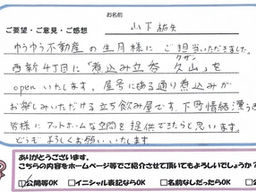 お名前
ご要望・ご意見・ご感想
山下
ゆうゆう不動産の生月様にご担当いただきました。
西新4丁目に「煮込み立呑 久山」を
クザン
openいたします。屋号にある通り煮込みが
お楽しみいただける立ち飲み屋です。下町情緒漂う
皆様にアットホームな空間を提供できたらと思います。
どうぞよろしくお願いいたします
ありがとうございます。
こちらの内容をホームページ等でご紹介させて頂いてもよろしいでしょうか?
公開等OK
イニシャル表記ならOK
名前なしだったらOK